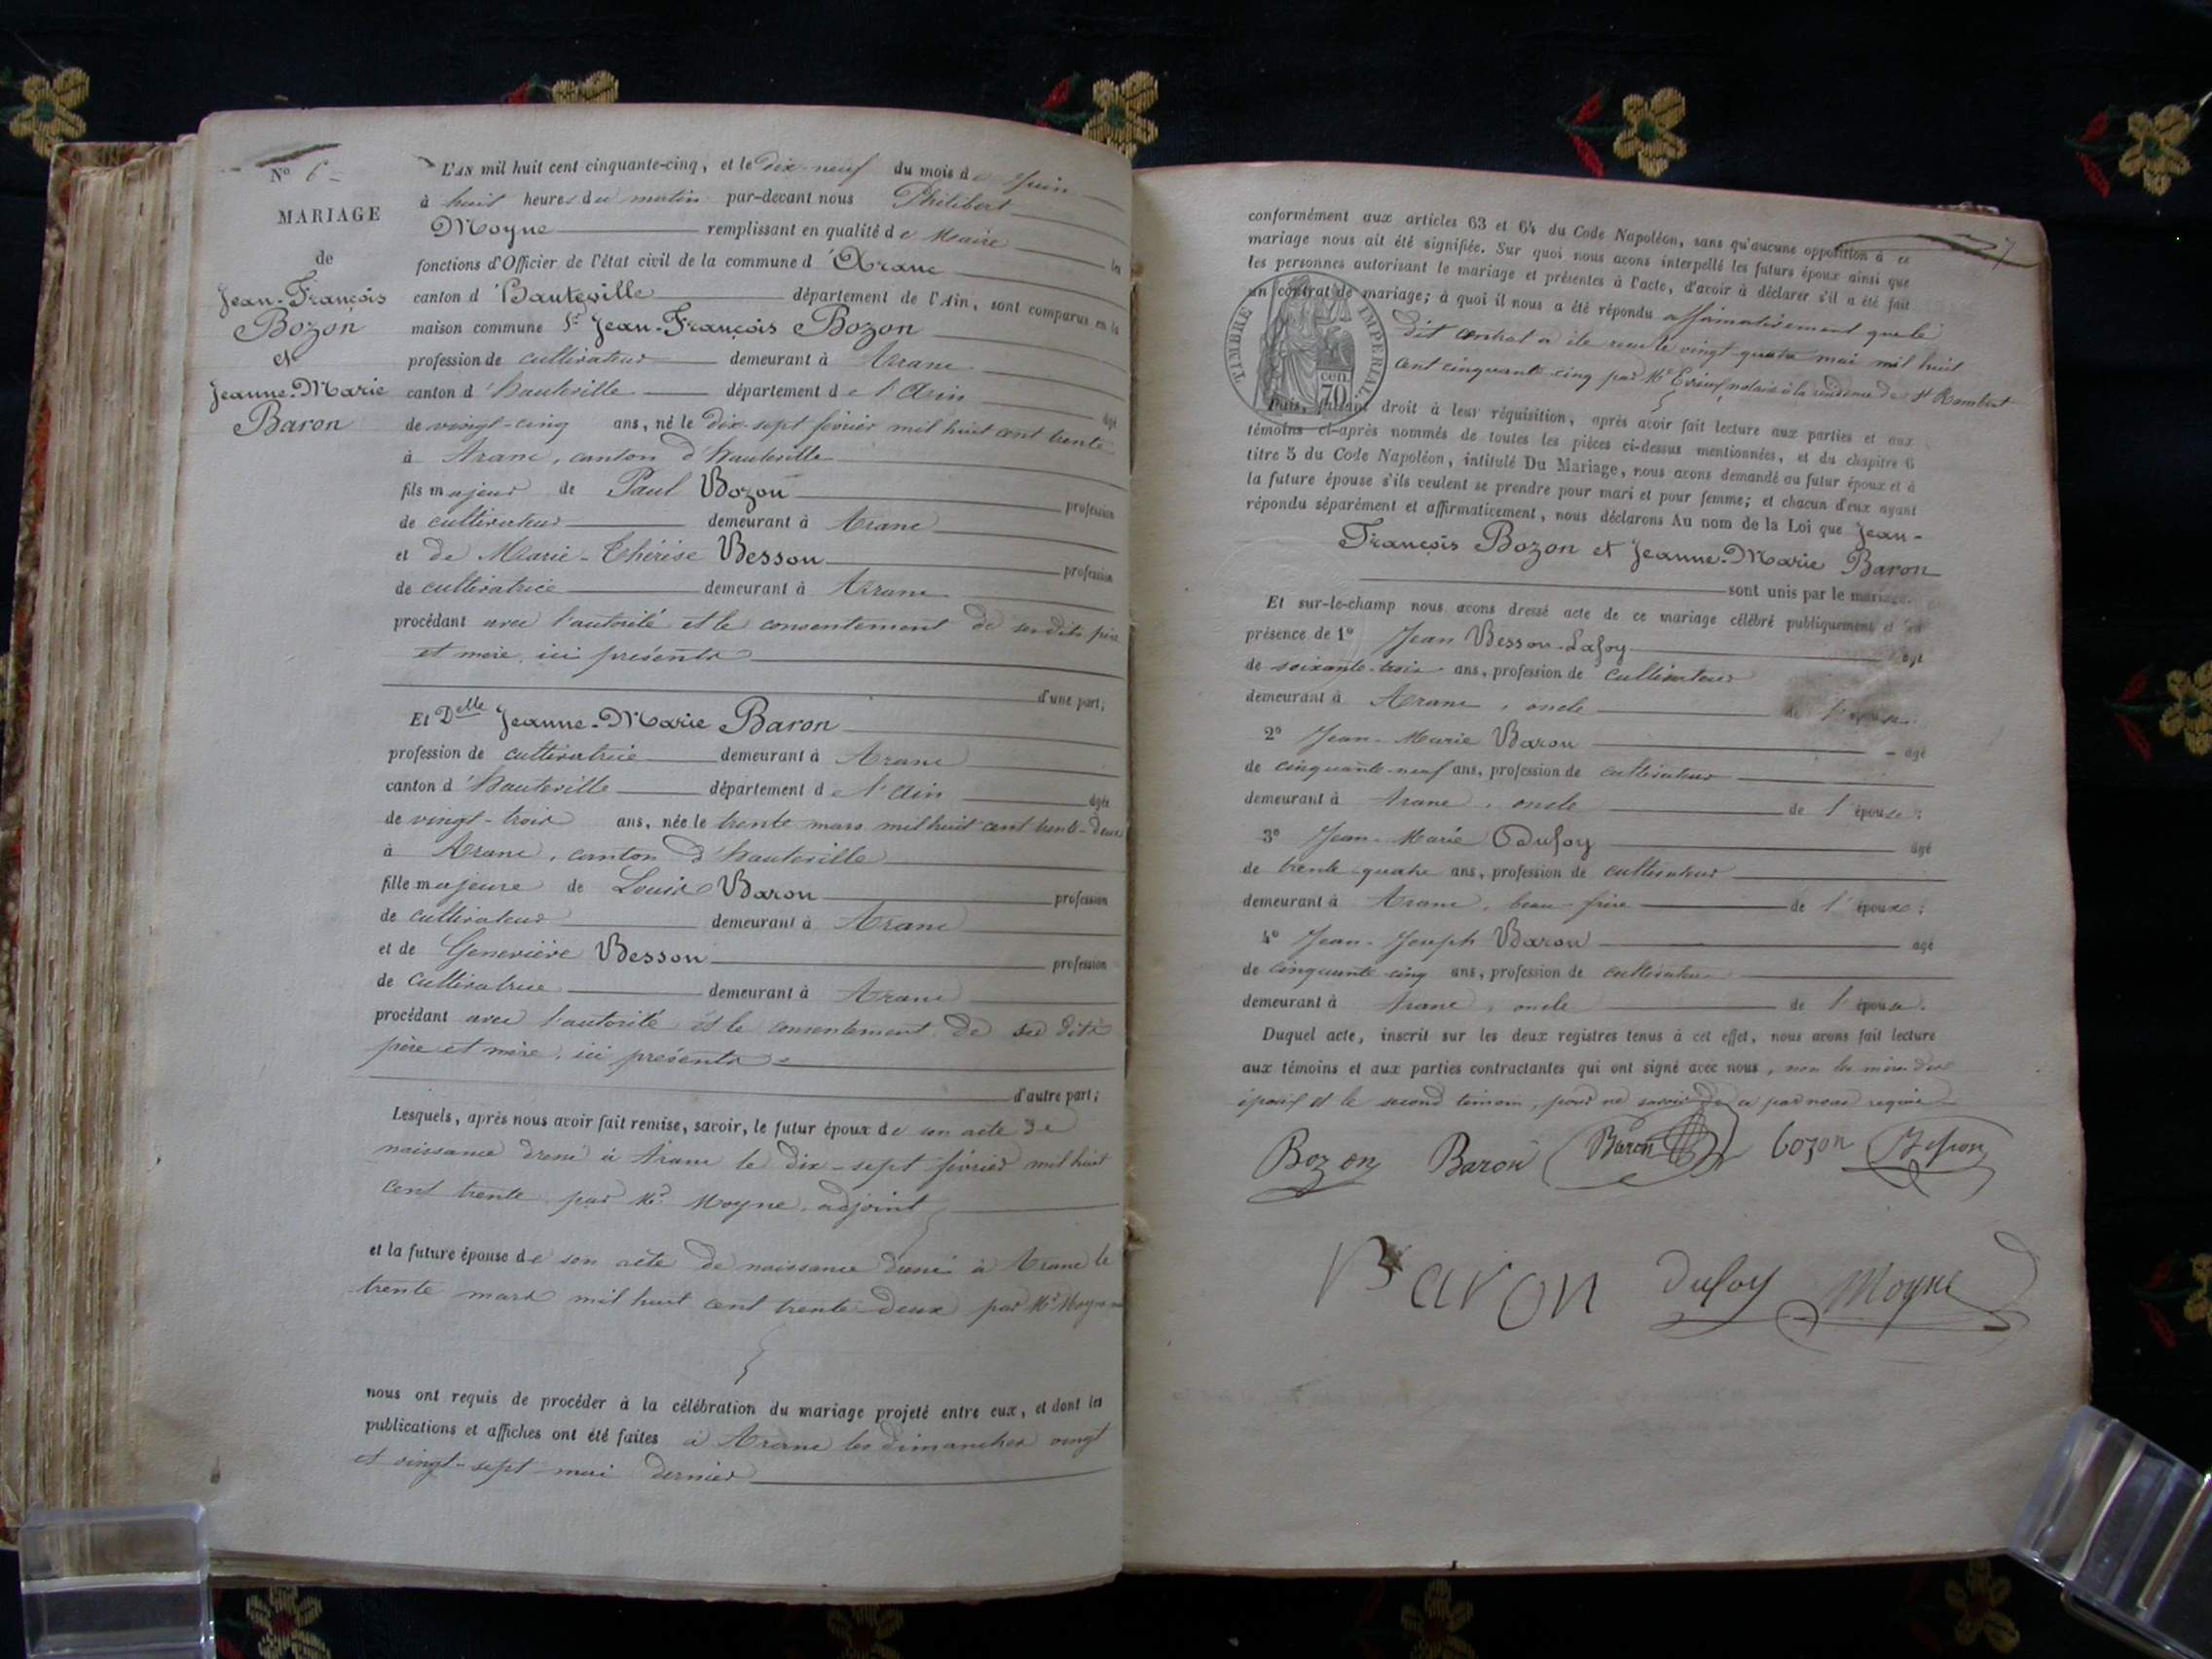 N° 6
MARIAGE
de
Jean-François
Bozon
et
Jeanne-Marie
Baron
L'AN mil huit cent cinquante-cinq, et le dix-neuf du mois de Juin
à huit heures du matin par-devant nous Philibert
Moyne remplissant en qualité de Maire les
fonctions d'Officier de l'état civil de la commune d'Aranc
canton d'Hauteville département de l'Ain, sont comparus en la
maison commune Sr Jean-François Bozon
profession de cultivateur demeurant à Aranc
canton d'hauteville département de l'Ain âgé
de vingt-cinq ans, né le dix-sept février mil huit cent trente
à Aranc, canton d'hauteville
fils majeur de Paul Bozon profession
de cultivateur demeurant à Aranc
et de Marie-Thérèse Besson profession
de cultivatrice demeurant à Aranc
procédant avec l'autorité et le consentement de sesdits père
et mère, ici présents
d'une part;
Et Delle Jeanne-Marie Baron
profession de cultivatrice demeurant à Aranc
canton d'hauteville département de l'Ain âgée
de vingt-trois ans, née le trente mars mil huit cent trente-deux
à Aranc, canton d'hauteville
fille majeure de Louis Baron profession
de cultivateur demeurant à Aranc
et de Geneviève Besson profession
de cultivatrice demeurant à Aranc
procédant avec l'autorité et le consentement de ses dits
père et mère, ici présents
d'autre part;
Lesquels, après nous avoir fait remise, savoir, le futur époux de son acte de
naissance dressé à Aranc le dix-sept février mil huit
cent trente par Mr Moyne, adjoint
et la future épouse de son acte de naissance dressé à Aranc le
trente mars mil huit cent trente deux par Mr Moyne
nous ont requis de procéder à la célébration du mariage projeté entre eux, et dont les
publications et affiches ont été faites à Aranc les dimanches vingt
et vingt-sept mai dernier
7
conformément aux articles 63 et 64 du Code Napoléon, sans qu'aucune opposition à ce
mariage nous ait été signifiée. Sur quoi nous avons interpellé les futurs époux ainsi que
les personnes autorisant le mariage et présentes à l'acte, d'avoir à déclarer s'il a été fait
un contrat de mariage; à quoi il nous a été répondu affirmativement que le
dit contrat a été reçu le vingt-quatre mai mil huit
cent cinquante-cinq par Me notaire à la résidence de St Rambert
TIMBRE IMPERIAL
70 cen.
Puis, faisant droit à leur réquisition, après avoir fait lecture aux parties et aux
témoins ci-après nommés de toutes les pièces ci-dessus mentionnées, et du chapitre 6
titre 5 du Code Napoléon, intitulé Du Mariage, nous avons demandé au futur époux et à
la future épouse s'ils veulent se prendre pour mari et pour femme; et chacun d'eux ayant
répondu séparément et affirmativement, nous déclarons Au nom de la Loi que Jean-
François Bozon et Jeanne-Marie Baron
sont unis par le mariage.
Et sur-le-champ nous avons dressé acte de ce mariage célébré publiquement et en
présence de 1° Jean Besson-Lafoy âgé
de soixante-trois ans, profession de cultivateur
demeurant à Aranc, oncle de l'épouse;
2° Jean-Marie Baron âgé
de cinquante-neuf ans, profession de cultivateur
demeurant à Aranc, oncle de l'épouse;
3° Jean-Marie Dufoy âgé
de trente-quatre ans, profession de cultivateur
demeurant à Aranc, beau-frère de l'épouse;
4° Jean-Joseph Baron âgé
de cinquante-cinq ans, profession de cultivateur
demeurant à Aranc, oncle de l'épouse.
Duquel acte, inscrit sur les deux registres tenus à cet effet, nous avons fait lecture
aux témoins et aux parties contractantes qui ont signé avec nous, non les mères des
époux et le second témoin, pour ne savoir de ce par nous requis
Bozon Baron Baron bozon Besson
Baron Dufoy Moyne